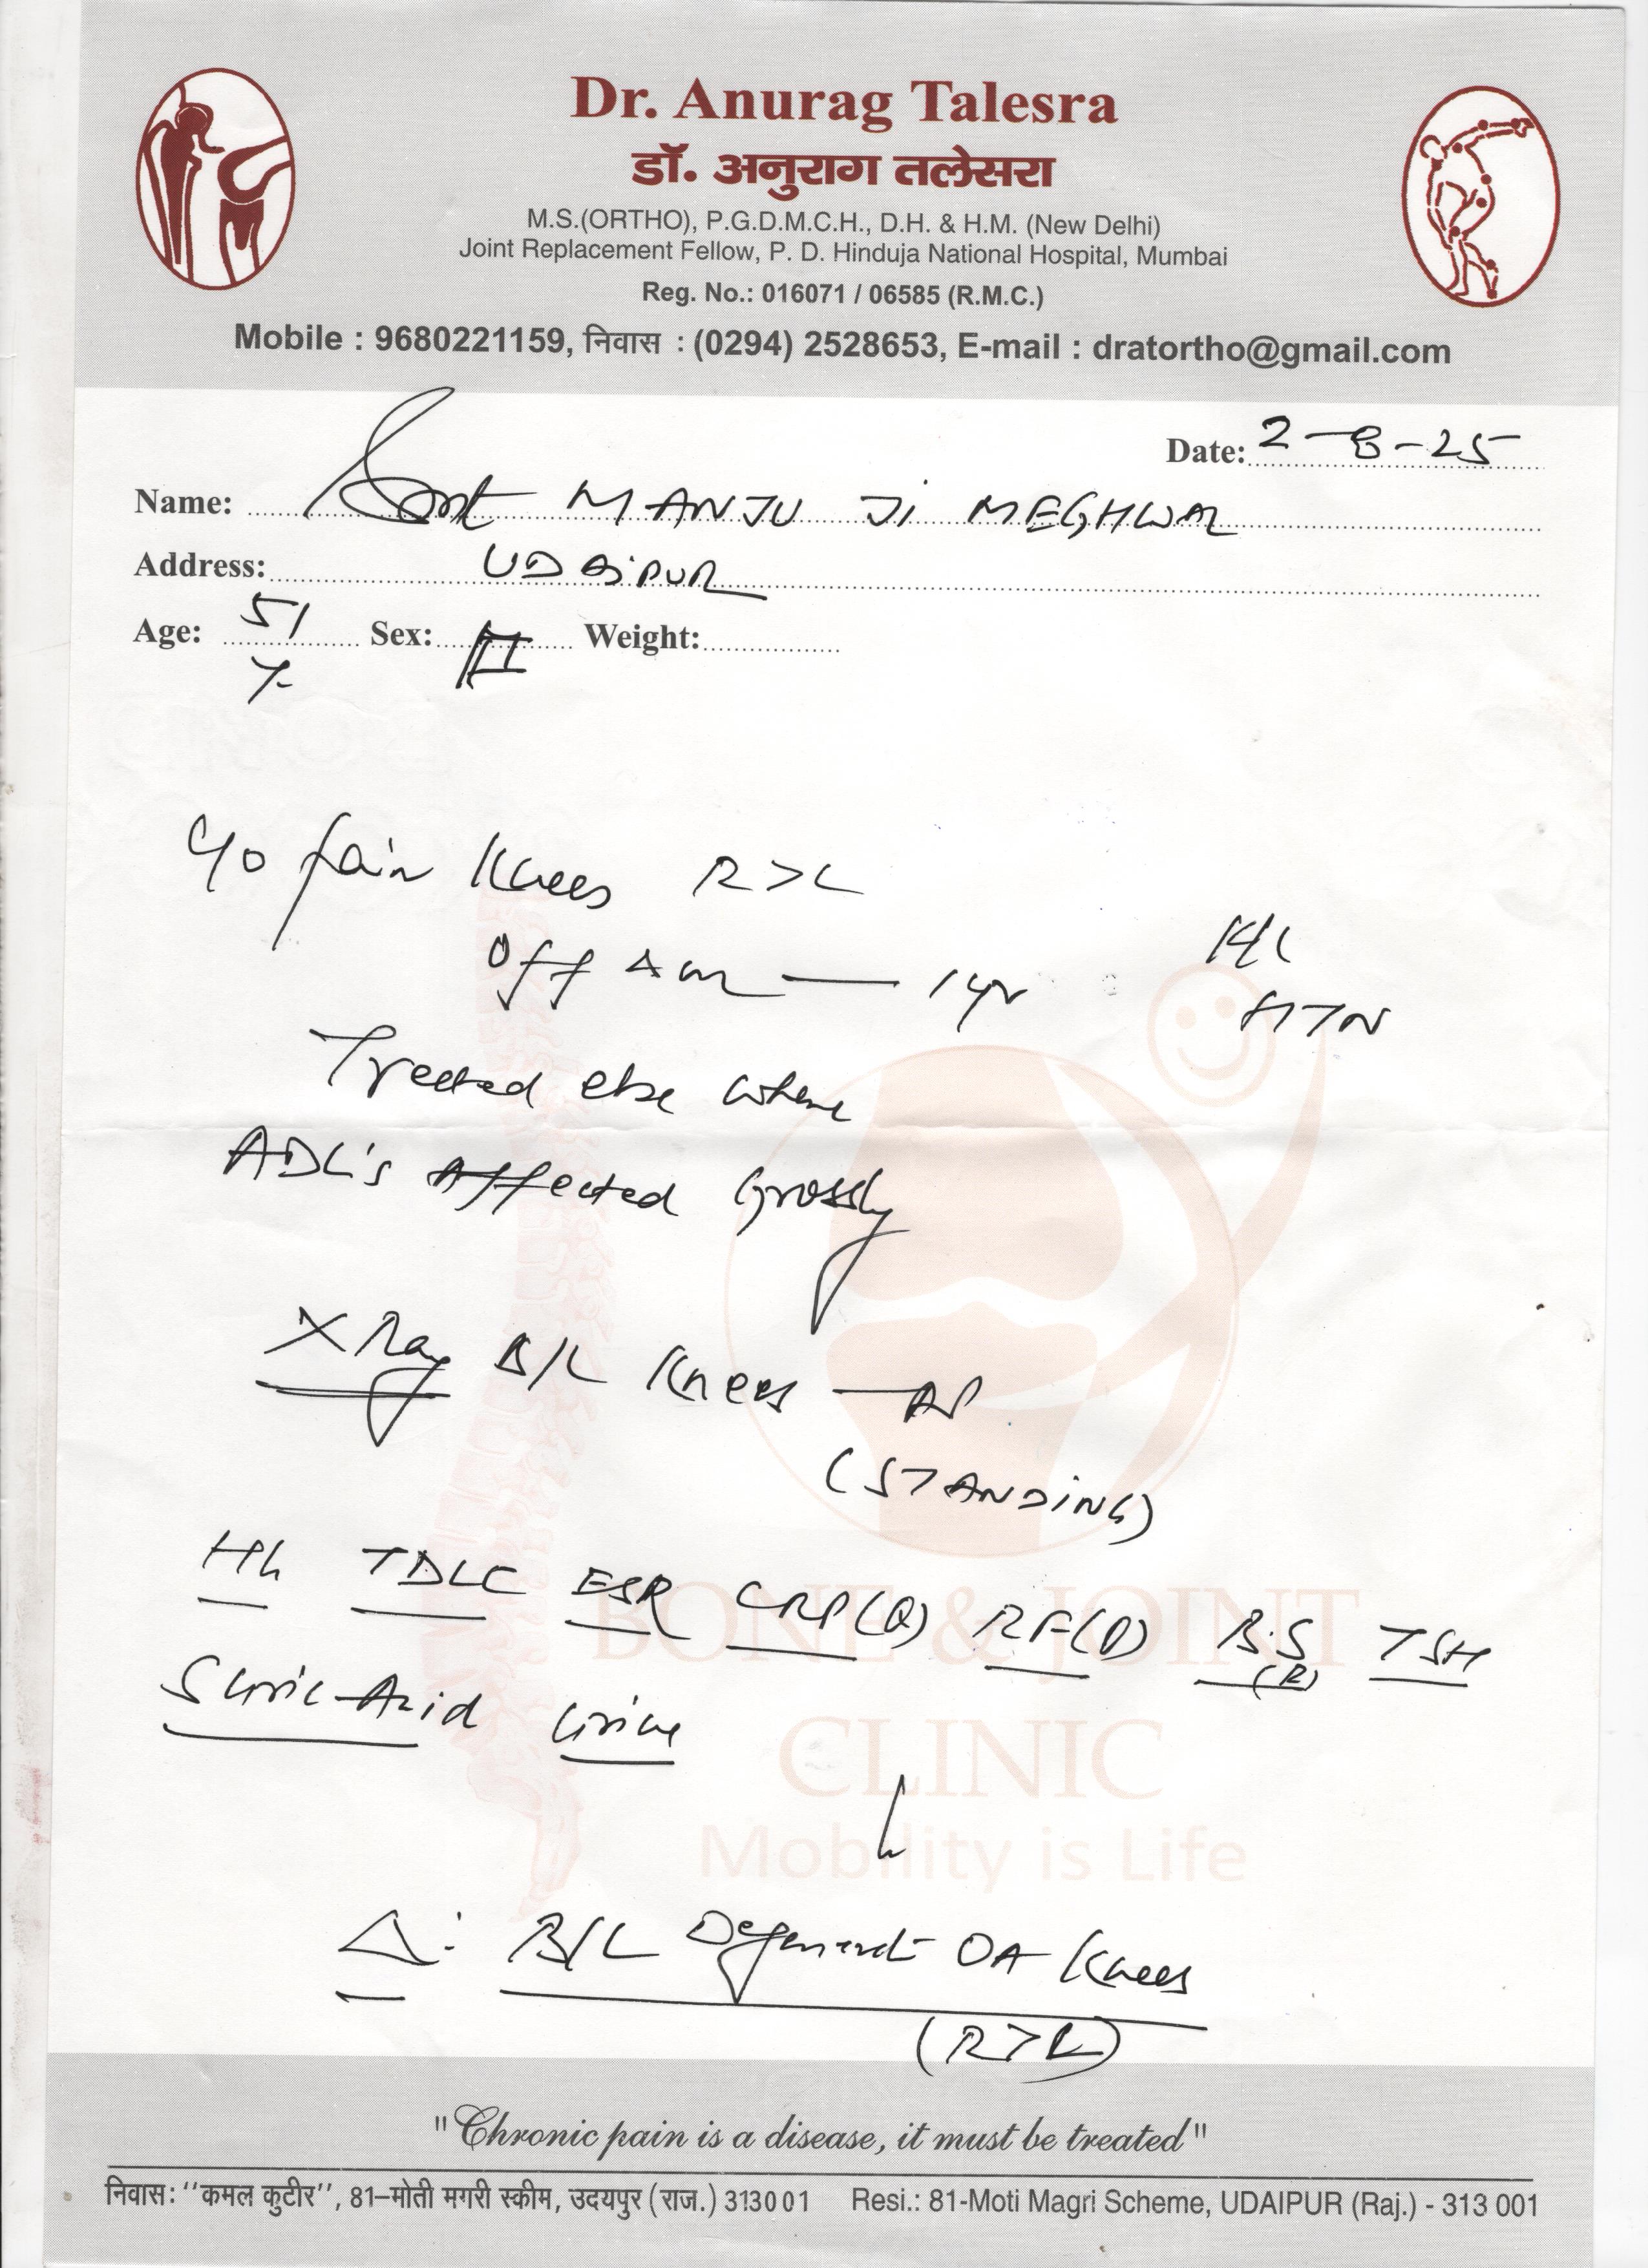 Dr. Anurag Talesra
डॉ. अनुराग तलेसरा
M.S.(ORTHO), P.G.D.M.C.H., D.H. & H.M. (New Delhi)
Joint Replacement Fellow, P. D. Hinduja National Hospital, Mumbai
Reg. No.: 016071 / 06585 (R.M.C.)
Mobile : 9680221159, निवास : (0294) 2528653, E-mail : dratortho@gmail.com
Date: 2-8-25
Name: Smt MANJU Ji MEGHWAL
Address: UDAiPUR
Age: 51 Sex: Weight:
Y
C/o Pain Knees R>L
Off & on — 1 yr
HTN
Treated else where
ADL's Affected Grossly
X Ray B/L Knees — AP
(STANDiNG)
Hb TDLC ESR CRP(Q) RF(Q) B.S TSH
(R)
S Uric Acid Urine
BONE & JOINT
CLINIC
Mobility is Life
Δ: B/L Degenerat OA Knees
(R>L)
"Chronic pain is a disease, it must be treated"
निवास: ''कमल कुटीर'', 81–मोती मगरी स्कीम, उदयपुर (राज.) 313001 Resi.: 81-Moti Magri Scheme, UDAIPUR (Raj.) - 313 001